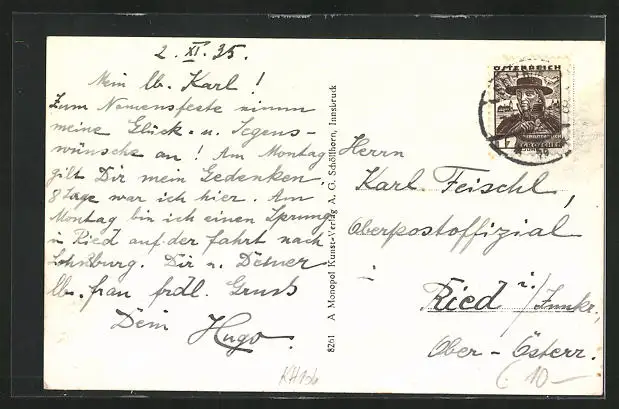 2. XI. 35.
Mein lb. Karl!
Zum Namensfeste nimm
meine Glück- u. Segens-
wünsche an! Am Montag
gilt Dir mein Gedenken.
8 Tage war ich hier. Am
Montag bin ich einen Sprung
in Ried auf der Fahrt nach
Dir u. Deiner
lb. Frau frdl. Gruss
Dein Hugo.
8261 A Monopol Kunst-Verlag A. G. Schöllhorn, Innsbruck
ÖSTERREICH
12
GROSCHEN
Herrn
Karl Feischl,
Oberpostoffizial
Ried i./Innkr.,
Ober-Österr.
KH156
10-